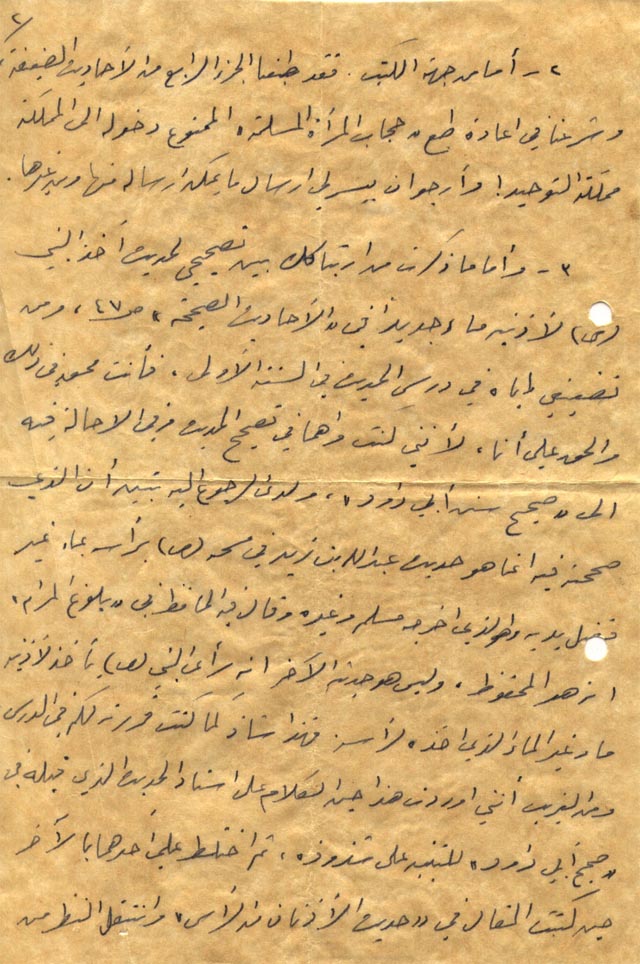 ٢/
٢ - أما من جهة الكتب. فقد طبعنا الجزء الرابع من الأحاديث الضعيفة،
وشرعنا في اعادة طبع «حجاب المرأة المسلمة» الممنوع دخوله الى المملكة
مملكة التوحيد! وأرجو ان ييسر لي ارسال ما يمكن ارساله منها ومن غيرها.
٣ - وأما ما ذكرت من ارتباكك بين تصحيحي لحديث أخذ النبي
(ص) لأذنيه ماء جديدا في «الأحاديث الصحيحة» ص ٤٧، ومن
تضعيفي إياه في درس الحديث في السنة الأولى، فأنت محق في ذلك
والحق علي أنا، لأنني كنت واهما في تصحيح الحديث وفي الاحالة فيه
الى «صحيح سنن أبي داود»، ولدى الرجوع اليه تبين أن الذي
صححته فيه انما هو حديث عبد الله بن زيد في مسحه (ص) برأسه بماء غير
فضل يديه وهو الذي اخرجه مسلم وغيره وقال فيه الحافظ في «بلوغ المرام»
انه هو المحفوظ، وليس هو حديثه الآخر انه رأى النبي (ص) يأخذ لأذنيه
ماء غير الماء الذي اخذه لرأسه فهذا شاذ كما كنت قررته لكم في الدرس
ومن الغريب أنني اوردت هذا حين الكلام على اسناد الحديث الذي قبله في
«صحيح أبي داود» للتنبيه على شذوذه، ثم اختلط علي أحدهما بالآخر
حين كتبت المقال في «حديث الأذنان من الرأس» وانتقل النظر من